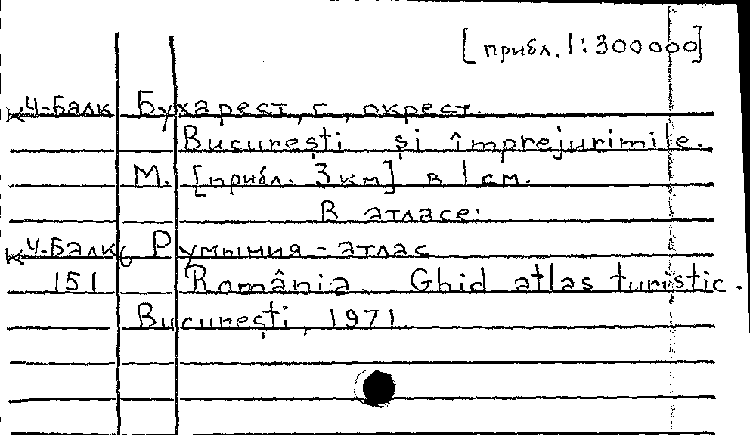 [прибл. 1:300000]
К4-Балк Бухарест, г., окрест.
București și împrejurimile.
М. [прибл. 3км] в 1 см.
В атласе:
К4-Балк Румыния - атлас
6/151 România Ghid atlas turistic.
București, 1971